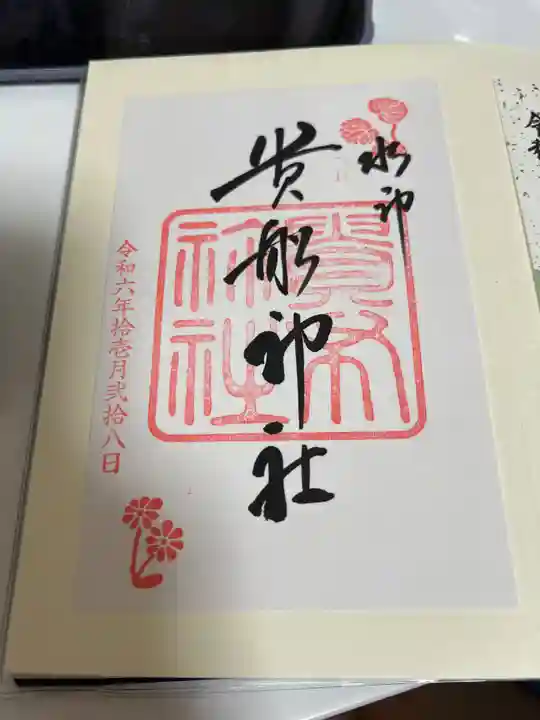 水神
貴船神社
令和六年拾壱月弐拾八日
令和